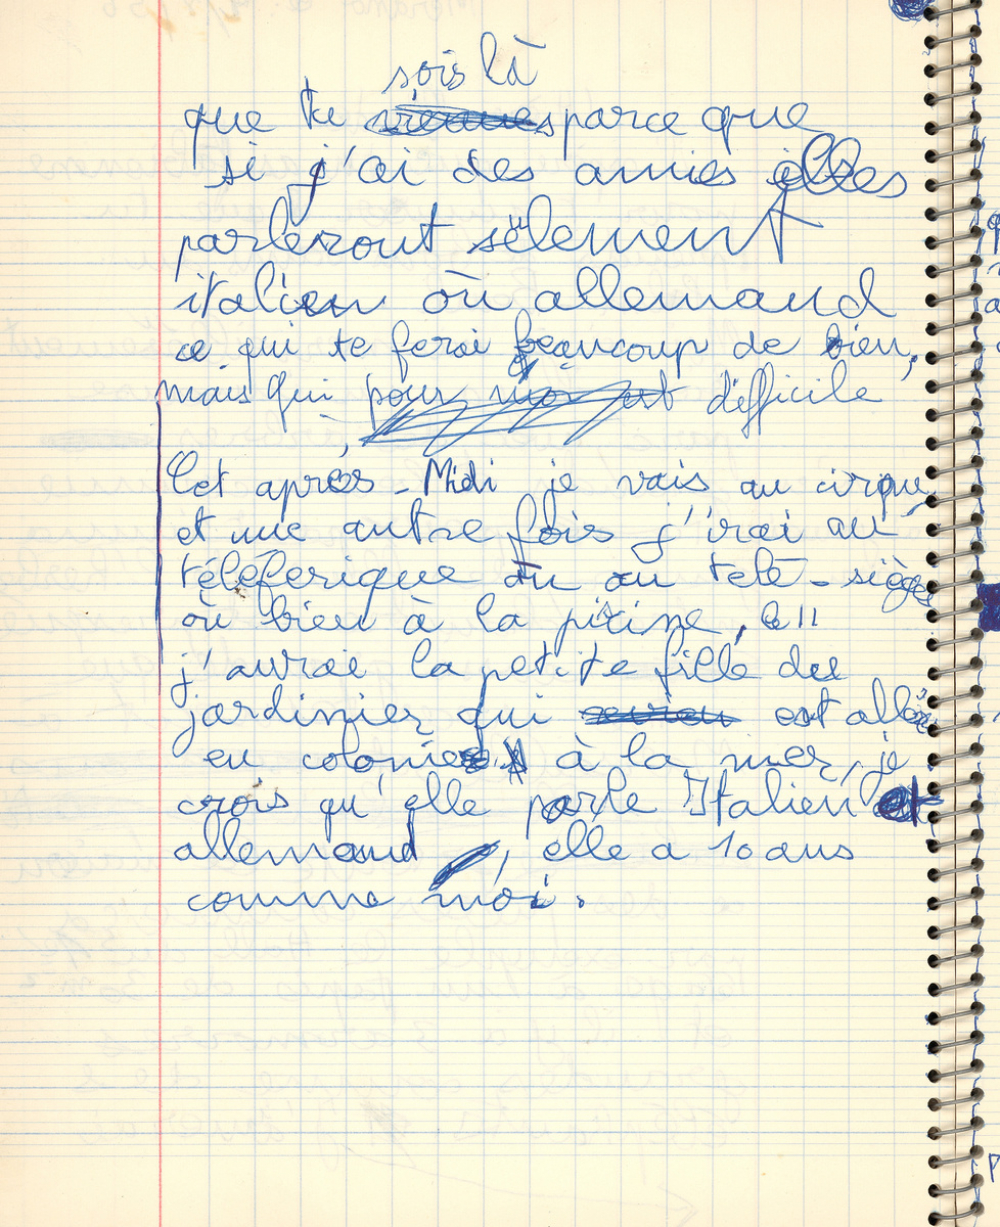 sois là
que tu viennes parce que
si j'ai des amies elles
parleront sëlement
italien où allemand
ce qui te ferai beaucoup de bien,
mais qui pour moi est difficile
Cet après-Midi je vais au cirque,
et une autre fois j'irai au
téléferique ou au telé-sièges
où bien à la picine, le 11
j'aurai la petite fille du
jardinier qui est allée
en colonie à la mer, je
crois qu'elle parle Italien et
allemand, elle a 10 ans
comme moi.